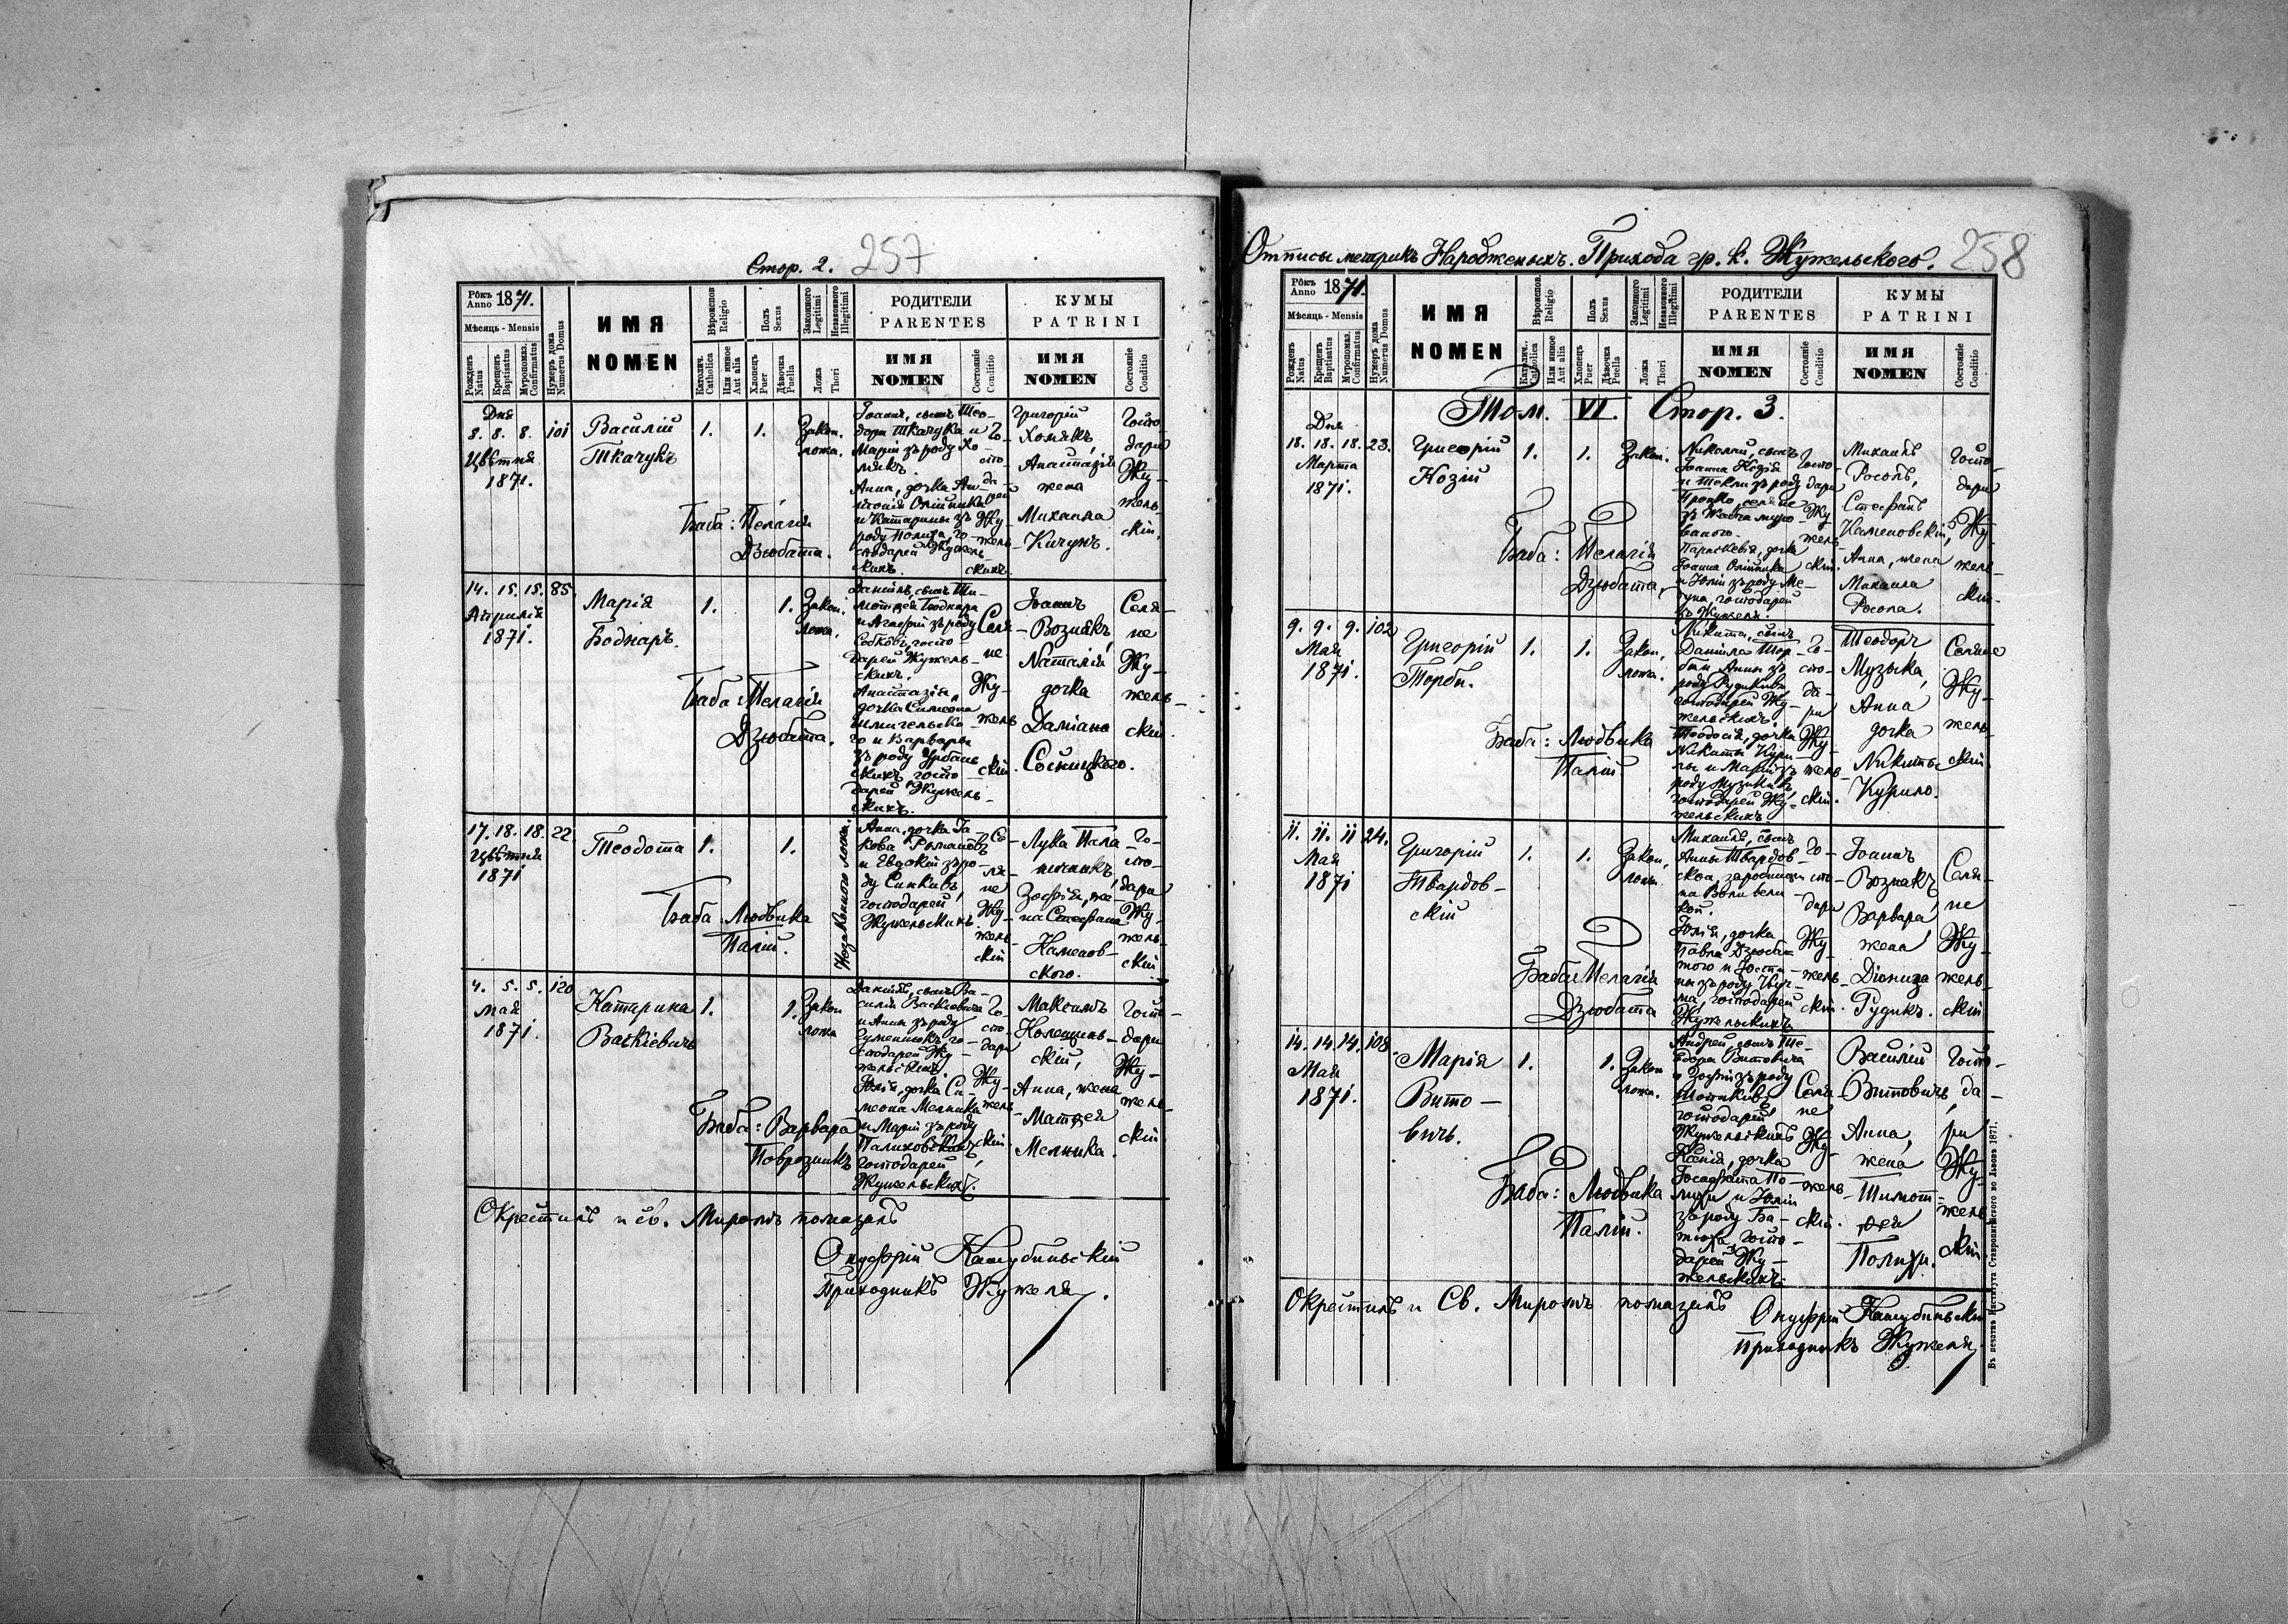 Стор. 2. 257
Рôкъ Anno 1871.
Мѣсяць - Mensis
Рожденъ Natus
Крещенъ Baptisatus
Муропомаз. Confirmatus
Нумеръ дома Numerus Domus
ИМЯ
NOMEN
Вѣроисповѣд. Religio
Католич. Catholica
Или иное Aut alia
Полъ Sexus
Хлопецъ Puer
Дѣвочка Puella
Законного Legitimi
Незаконного Illegitimi
Ложа Thori
РОДИТЕЛИ
PARENTES
ИМЯ
NOMEN
Состояніе Conditio
КУМЫ
PATRINI
ИМЯ
NOMEN
Состояніе Conditio
Дня
8. 8. 8. 101
Цвѣтня
1871.
Василій
Ткачукъ
1. 1.
Закон.
ложа.
Іоаннъ, сынъ Тео-
дора Ткачука и
Марій зъ роду Хо-
мякъ.
Анна, дочка Ан-
тонія Олійника
и Катарины зъ
роду Полиха, го-
сподарей Жужель-
скихъ.
Го-
спо-
да-
реи
Жу-
жель-
скихъ.
Григорій
Хомякъ,
Анастазія
жена
Михаила
Кичукъ.
Госпо-
дари
Жу-
жель-
скіи.
Баба: Пелагія
Дзюбата.
14. 15. 15. 85.
Априлія
1871.
Марія
Боднаръ.
1. 1.
Закон.
ложа.
Даніилъ, сынъ Ти-
мотея Боднара
и Агафіи зъ роду
госпо-
дарей Жужель-
скихъ.
Анастазія,
дочка Симеона
Шмигельско-
го и Варвары
зъ роду Урбань-
скихъ госпо-
дарей Жужель-
скихъ.
Селя-
не
Жу-
жель-
скіи.
Іоаннъ
Вознякъ,
Наталія
дочка
Даміана
Сосницкого.
Селя-
не
Жу-
жель-
скіи.
Баба: Пелагія
Дзюбата.
17. 18. 18. 22
Цвѣтня
1871
Теодота
1. 1.
Незаконного ложа.
Анна, дочка Іа-
кова Романовъ
и Евдокіи зъ ро-
ду Синкивъ,
господарей
Жужельскихъ.
Се-
ля-
не
Жу-
жель-
скіи
Лука Пала-
Зофія, же-
на Стефана
Каменов-
ского.
Го-
спо-
дари
Жу-
жель-
скіи
Баба: Людвика
Палій.
4. 5. 5. 120
Мая
1871.
Катерина
Васкіевичъ
1. 1.
Закон
ложа
Даніилъ, сынъ Ва-
силія Васкіевича
и Анны зъ роду
го-
сподарей Жу-
жельскихъ.
Юлія, дочка Си-
меона Мельника
и Маріи зъ роду
Палиховскихъ,
господарей
Жужельскихъ.
Го-
спо-
дари
Жу-
жель-
скіи.
Максимъ
Колещинь-
скій,
Анна, жена
Матѳея
Мельника.
Госп-
дари
Жу-
жель-
скіи.
Баба: Варвара
Поврозникъ
Окрестилъ и св. Миромъ помазалъ
Онуфрій Кашубиньскій
Приходникъ Жужеля.
Отписы метрикъ Народженыхъ. Прихода гр. к. Жужельского. 258
Рôкъ Anno 1871.
Мѣсяць - Mensis
Рожденъ Natus
Крещенъ Baptisatus
Муропомаз. Confirmatus
Нумеръ дома Numerus Domus
ИМЯ
NOMEN
Вѣроисповѣд. Religio
Католич. Catholica
Или иное Aut alia
Полъ Sexus
Хлопецъ Puer
Дѣвочка Puella
Законного Legitimi
Незаконного Illegitimi
Ложа Thori
РОДИТЕЛИ
PARENTES
ИМЯ
NOMEN
Состояніе Conditio
КУМЫ
PATRINI
ИМЯ
NOMEN
Состояніе Conditio
Том. VI. Стор. 3.
Дня
18. 18. 18. 23.
Марта
1871.
Григорій
Козій
1. 1.
Закон.
Николай, сынъ
Іоанна Козія
и Теклі зъ роду
Процко, селяне
зъ Жовча муро-
ваного.
Параскевія, дочка
Іоанна Олійника
и Юліи зъ роду Ме-
господарей
въ Жужели.
Госпо-
дари
Жу-
жель-
скіи.
Михаилъ
Росопъ,
Стефанъ
Каменовскій,
Анна, жена
Михаила
Росопа.
Госпо-
дари
Жу-
жель-
скіи.
Баба: Пелагія
Дзюбата,
9. 9. 9. 102
Мая
1871.
Григорій
Торби.
1. 1.
Закон.
ложа.
Никита, сынъ
Даніила Тор-
би и Анны зъ
роду Рудикивъ,
господарей Жу-
жельскихъ.
Теодосія, дочка
Никиты Кури-
лы и Маріи зъ
роду Музыкивъ,
господарей Жу-
жельскихъ.
Го-
спо-
да-
ри
Жу-
жель-
скіи.
Теодоръ
Музыка,
Анна
дочка
Никиты
Курило.
Селяне
Жу-
жель-
скіи.
Баба: Людвика
Палій
11. 11. 11 24.
Мая
1871
Григорій
Твардов-
скій
1. 1.
Закон.
ложа.
Михаилъ, сынъ
Анны Твардов-
скоа, заробница
на Воли вели-
кой.
Юлія, дочка
Павла Дзюба-
того и Юсти-
ны зъ роду
господарей
Жужельскихъ
Го-
спо-
дари
Жу-
жель-
скіи.
Іоаннъ
Вознякъ,
Варвара,
жена
Діониза
Рудикъ.
Селя-
не
Жу-
жель-
скіи
Баба: Пелагія
Дзюбата
14. 14. 14. 108.
Мая
1871.
Марія
Вито-
вичъ.
1. 1.
Закон
ложа.
Андрей, сынъ Те-
одора Витовича
и Зофіи зъ роду
господарей
Жужельскихъ
Ксенія, дочка
Іосафата По-
лихи и Юліи
зъ роду Ба-
госпо-
дарей Жу-
жельскихъ.
Селя-
не
Жу-
жель-
скіи.
Василій
Витовичъ,
Анна,
жена
Тимот-
ѳея
Полихи.
Госпо-
да-
ри
Жу-
жель-
скіи.
Баба: Людвика
Палій.
Окрестилъ и Св. Миромъ помазалъ
Онуфрій Кашубиньскій
Приходникъ Жужеля.
Въ печатни Института Ставропигійского во Львовѣ 1871.